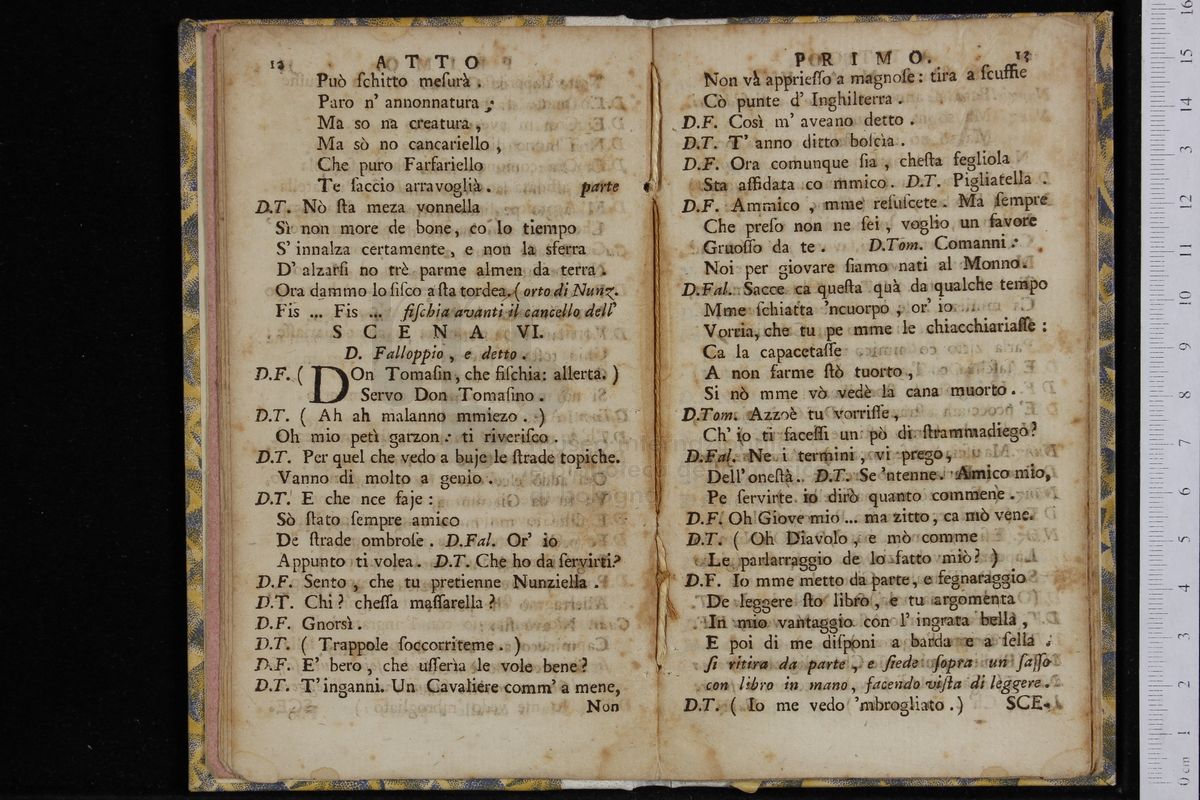 12 ATTO
Può ſchitto meſurà .
Paro n' annonnatura ;
Ma so na creatura ,
Ma sò no cancariello ,
Che puro Farfariello
Te faccio arravoglià . parte
D.T. Nò ſta meza vonnella
Sì non more de bone, co lo tiempo
S' innalza certamente , e non la sferra
D' alzarſi no trè parme almen da terra .
Ora dammo lo ſiſco a ſta tordea. ( orto di Nunz.
Fis ... Fis ... fiſchia avanti il cancello dell'
SCENA VI.
D. Falloppio , e detto .
D.F. ( DOn Tomaſin, che fiſchia: allerta. )
Servo Don Tomaſino .
D.T. ( Ah ah malanno mmiezo . )
Oh mio petì garzon : ti riveriſco .
D.T. Per quel che vedo a buje le ſtrade topiche.
Vanno di molto a genio .
D.T. E che nce faje :
Sò ſtato ſempre amico
De ſtrade ombroſe . D.Fal. Or' io
Appunto ti volea . D.T. Che ho da ſervirti?
D.F. Sento , che tu pretienne Nunziella .
D.T. Chi ? cheſſa maſſarella ?
D.F. Gnorsì .
D.T. ( Trappole ſoccorriteme . )
D.F. E' bero , che uſſerìa le vole bene ?
D.T. T'inganni. Un Cavaliére comm' a mene,
Non
PRIMO. 13
Non và apprieſſo a magnoſe : tira a ſcuffie
Cò punte d' Inghilterra .
D.F. Così m' aveano detto .
D.T. T' anno ditto boſcìa .
D.F. Ora comunque ſia , cheſta fegliola
Sta affidata co mmico . D.T. Pigliatella .
D.F. Ammico , mme reſuſcete . Ma ſempre
Che preſo non ne ſei , voglio un favore
Gruoſſo da te . D.Tom. Comanni :
Noi per giovare ſiamo nati al Monno .
D.Fal. Sacce ca queſta quà da qualche tempo
Mme ſchiatta 'ncuorpo , or' io
Vorria, che tu pe mme le chiacchiariaſſe :
Ca la capacetaſſe
A non farme ſtò tuorto ,
Si nò mme vò vedè la cana muorto .
D.Tom. Azzoè tu vorriſſe ,
Ch' io ti faceſſi un pò di ſtrammadiego?
D.Fal. Ne i termini , vi prego ,
Dell' oneſtà .. D.T. Se 'ntenne. Amico mio,
Pe ſervirte io dirò quanto commene .
D.F. Oh Giove mio ... ma zitto , ca mò vene.
D.T. ( Oh Diavolo , e mò comme
Le parlarraggio de lo fatto miò ? )
D.F. Io mme metto da parte, e fegnaraggio
De leggere ſto libro , e tu argomenta
In mio vantaggio con l' ingrata bella ,
E poi di me diſponi a barda e a ſella .
ſi ritira da parte , e ſiede ſopra un ſaſſo
con libro in mano, facendo viſta di leggere.
D.T. ( Io me vedo 'mbrogliato .) SCE-